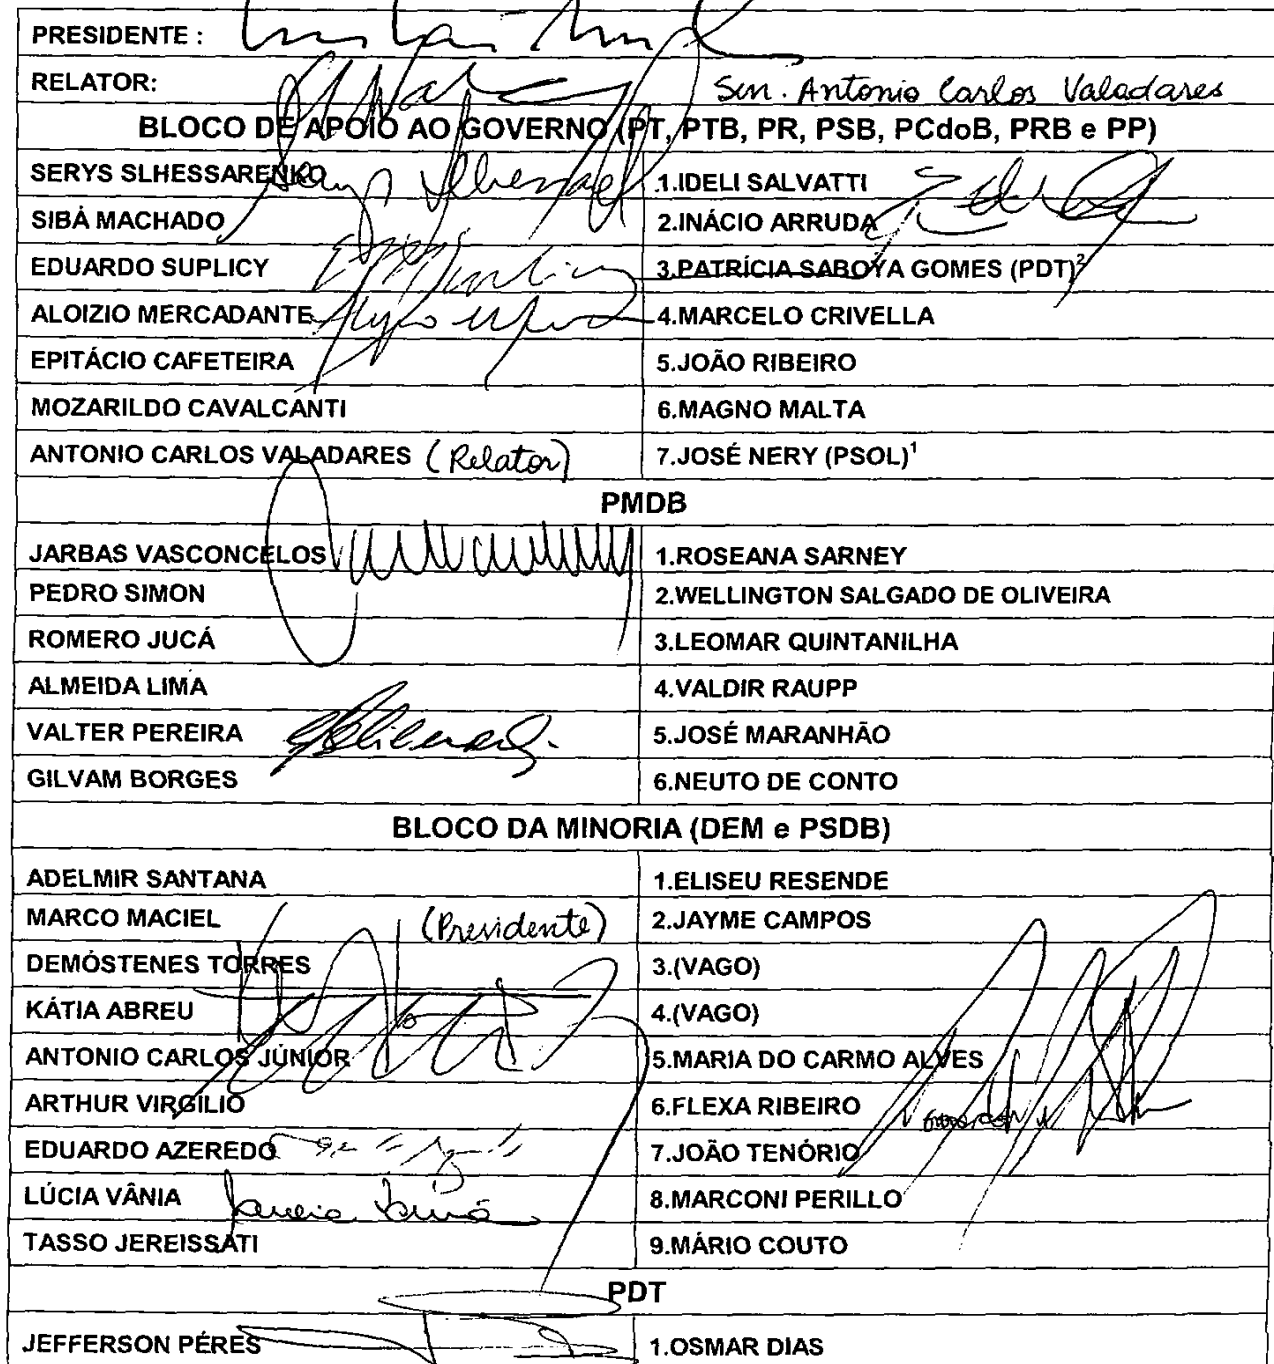 PRESIDENTE :
RELATOR: Sen. Antonio Carlos Valadares
BLOCO DE APOIO AO GOVERNO (PT, PTB, PR, PSB, PCdoB, PRB e PP)
SERYS SLHESSARENKO 1.IDELI SALVATTI
SIBÁ MACHADO 2.INÁCIO ARRUDA
EDUARDO SUPLICY 3.PATRÍCIA SABOYA GOMES (PDT)²
ALOIZIO MERCADANTE 4.MARCELO CRIVELLA
EPITÁCIO CAFETEIRA 5.JOÃO RIBEIRO
MOZARILDO CAVALCANTI 6.MAGNO MALTA
ANTONIO CARLOS VALADARES (Relator) 7.JOSÉ NERY (PSOL)¹
PMDB
JARBAS VASCONCELOS 1.ROSEANA SARNEY
PEDRO SIMON 2.WELLINGTON SALGADO DE OLIVEIRA
ROMERO JUCÁ 3.LEOMAR QUINTANILHA
ALMEIDA LIMA 4.VALDIR RAUPP
VALTER PEREIRA 5.JOSÉ MARANHÃO
GILVAM BORGES 6.NEUTO DE CONTO
BLOCO DA MINORIA (DEM e PSDB)
ADELMIR SANTANA 1.ELISEU RESENDE
MARCO MACIEL (Presidente) 2.JAYME CAMPOS
DEMÓSTENES TORRES 3.(VAGO)
KÁTIA ABREU 4.(VAGO)
ANTONIO CARLOS JÚNIOR 5.MARIA DO CARMO ALVES
ARTHUR VIRGÍLIO 6.FLEXA RIBEIRO
EDUARDO AZEREDO 7.JOÃO TENÓRIO
LÚCIA VÂNIA 8.MARCONI PERILLO
TASSO JEREISSATI 9.MÁRIO COUTO
PDT
JEFFERSON PÉRES 1.OSMAR DIAS